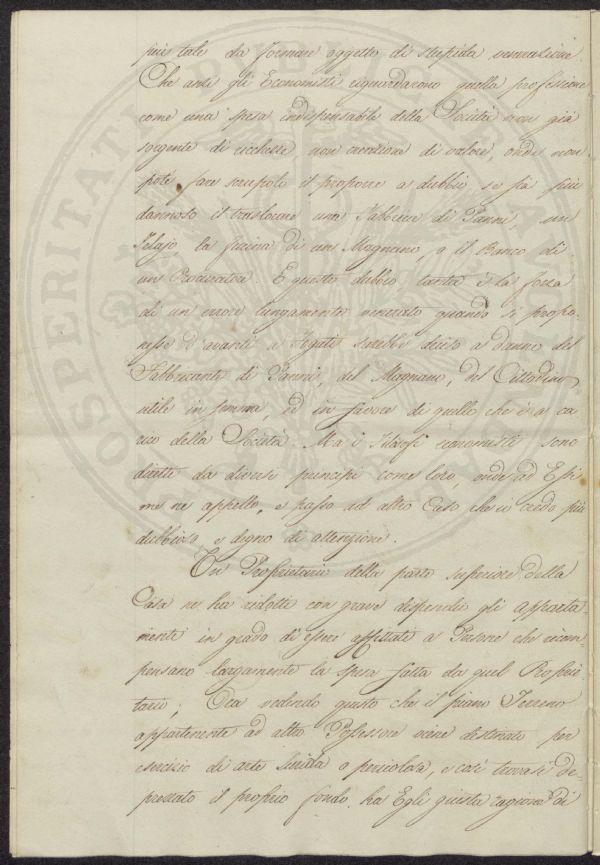 piu tale da formare oggetto di stupida venerazione
Che anzi gli Economisti riguardarono quella professione
come una spesa indispensabile della Società non già
sorgente di ricchezze, non creazione di valore, onde non
potè fare scrupolo il proporre a dubbio se sia piu
dannoso il traslocare una Fabbrica di Panni, un
Telajo la fucina di un Magnano, o il Banco di
un Procuratore. E questo dubbio, tanta è la forza
di un errore lungamente venerato quando si propo-
nesse d'avanti a Legati sarebbe deciso a danno del
Fabbricante di Panni, del Magnano, del Cittadino
utile in somma, ed in favore di quello che è a ca
rico della Società. Ma i Filosofi economisti sono
diretti da diversi principi come loro, onde ad Essi
me ne appello, e passo ad altro Caso che io credo più
dubbioso e degno di attenzione.
Un Proprietario della parte superiore della
Casa ne ha ridotti con grave dispendio gli apparta
menti in grado di essere affittati a Persone che ricom-
pensano largamente la spesa fatta da quel Proprie
tario; Ora vedendo questo che il piano Terreno
appartenente ad altro Possessore viene destinato per
esercizio di arte o pericolosa, e così trovasi de-
prezzato il proprio fondo, ha Egli giusta cagione di
PROSPERITATI